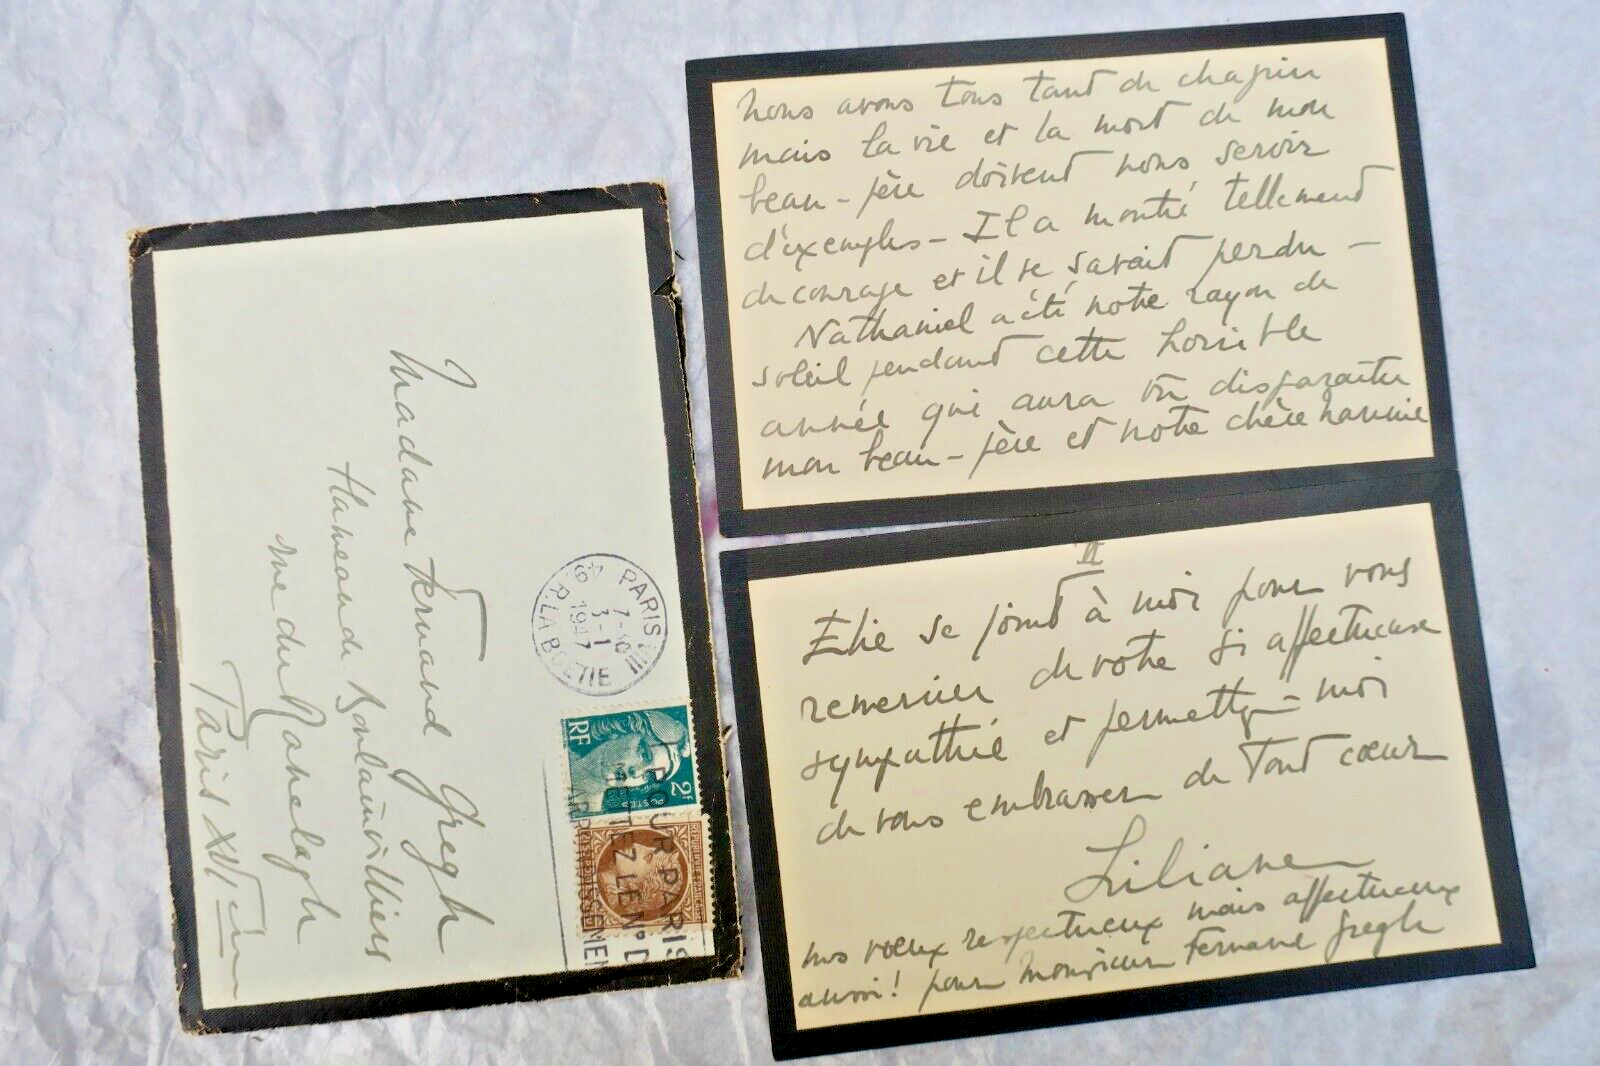 Madame Fernand Gregh
Hameau de Boulainvilliers
rue du Ranelagh
Paris XVIème
PARIS VIII
7-30
3-1
1947
R. LA BOETIE
RF
2F
POSTES
REPUBLIQUE FRANÇAISE
POUR PARIS
METTEZ LE N° D'
ARRONDISSEMEN
nous avons tous tant de chagrin
mais la vie et la mort de mon
beau-père doivent nous servir
d'exemples - Il a montré tellement
de courage et il se savait perdu -
Nathaniel a été notre rayon de
soleil pendant cette horrible
année qui aura vu disparaitre
mon beau-père et notre chère nannie
II
Elie se joint à moi pour vous
remercier de votre si affectueuse
sympathie et permettez-moi
de vous embrasser de tout cœur
Liliane
nos vœux respectueux mais affectueux
aussi! pour Monsieur Fernand Gregh